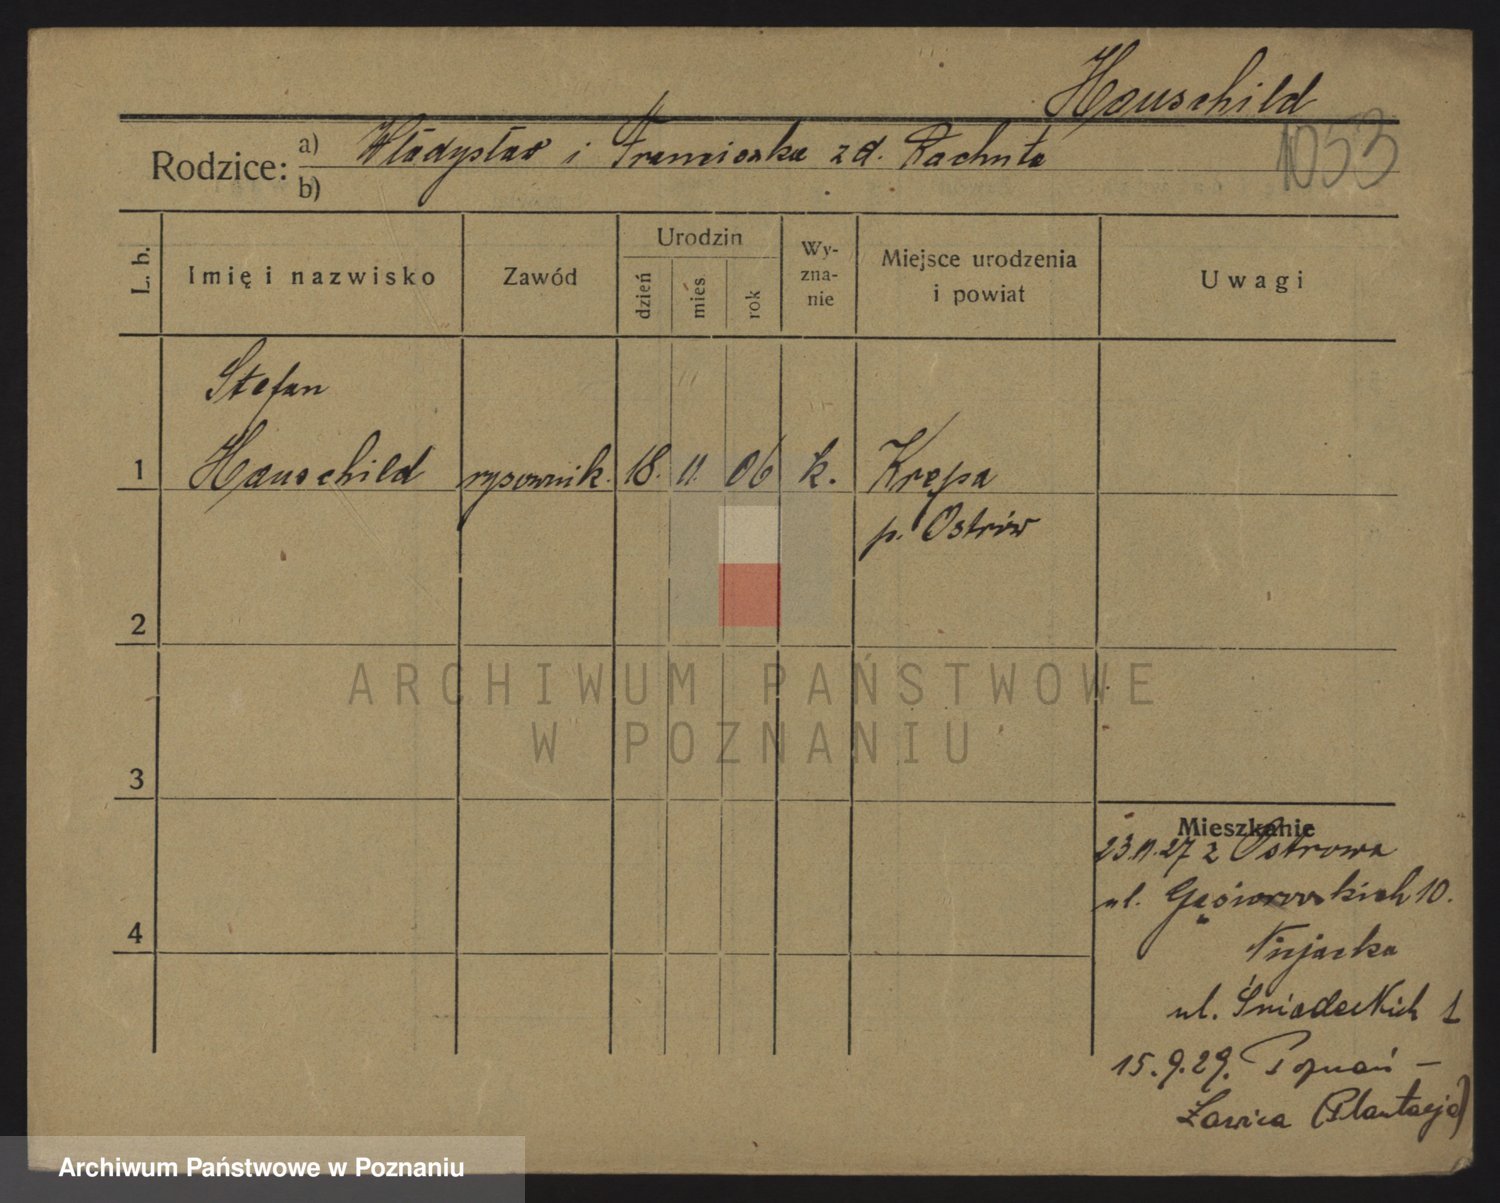 Hauschild
1053
Rodzice: a) Władysław i Franciszka z d. Pachuta
b)
L. b. Imię i nazwisko Zawód Urodzin dzień mies rok Wy-zna-nie Miejsce urodzenia i powiat Uwagi
Stefan
1 Hauschild rysownik. 18. 11. 06 k. Krępa
p. Ostrów
2
ARCHIWUM PAŃSTWOWE
W POZNANIU
3
Mieszkanie
23.11.27 z Ostrowa
ul. Gąsiorowskich 10.
ul. Śniadeckich 1
15.9.29. Poznań –
Ławica (Plantacja)
4
Archiwum Państwowe w Poznaniu